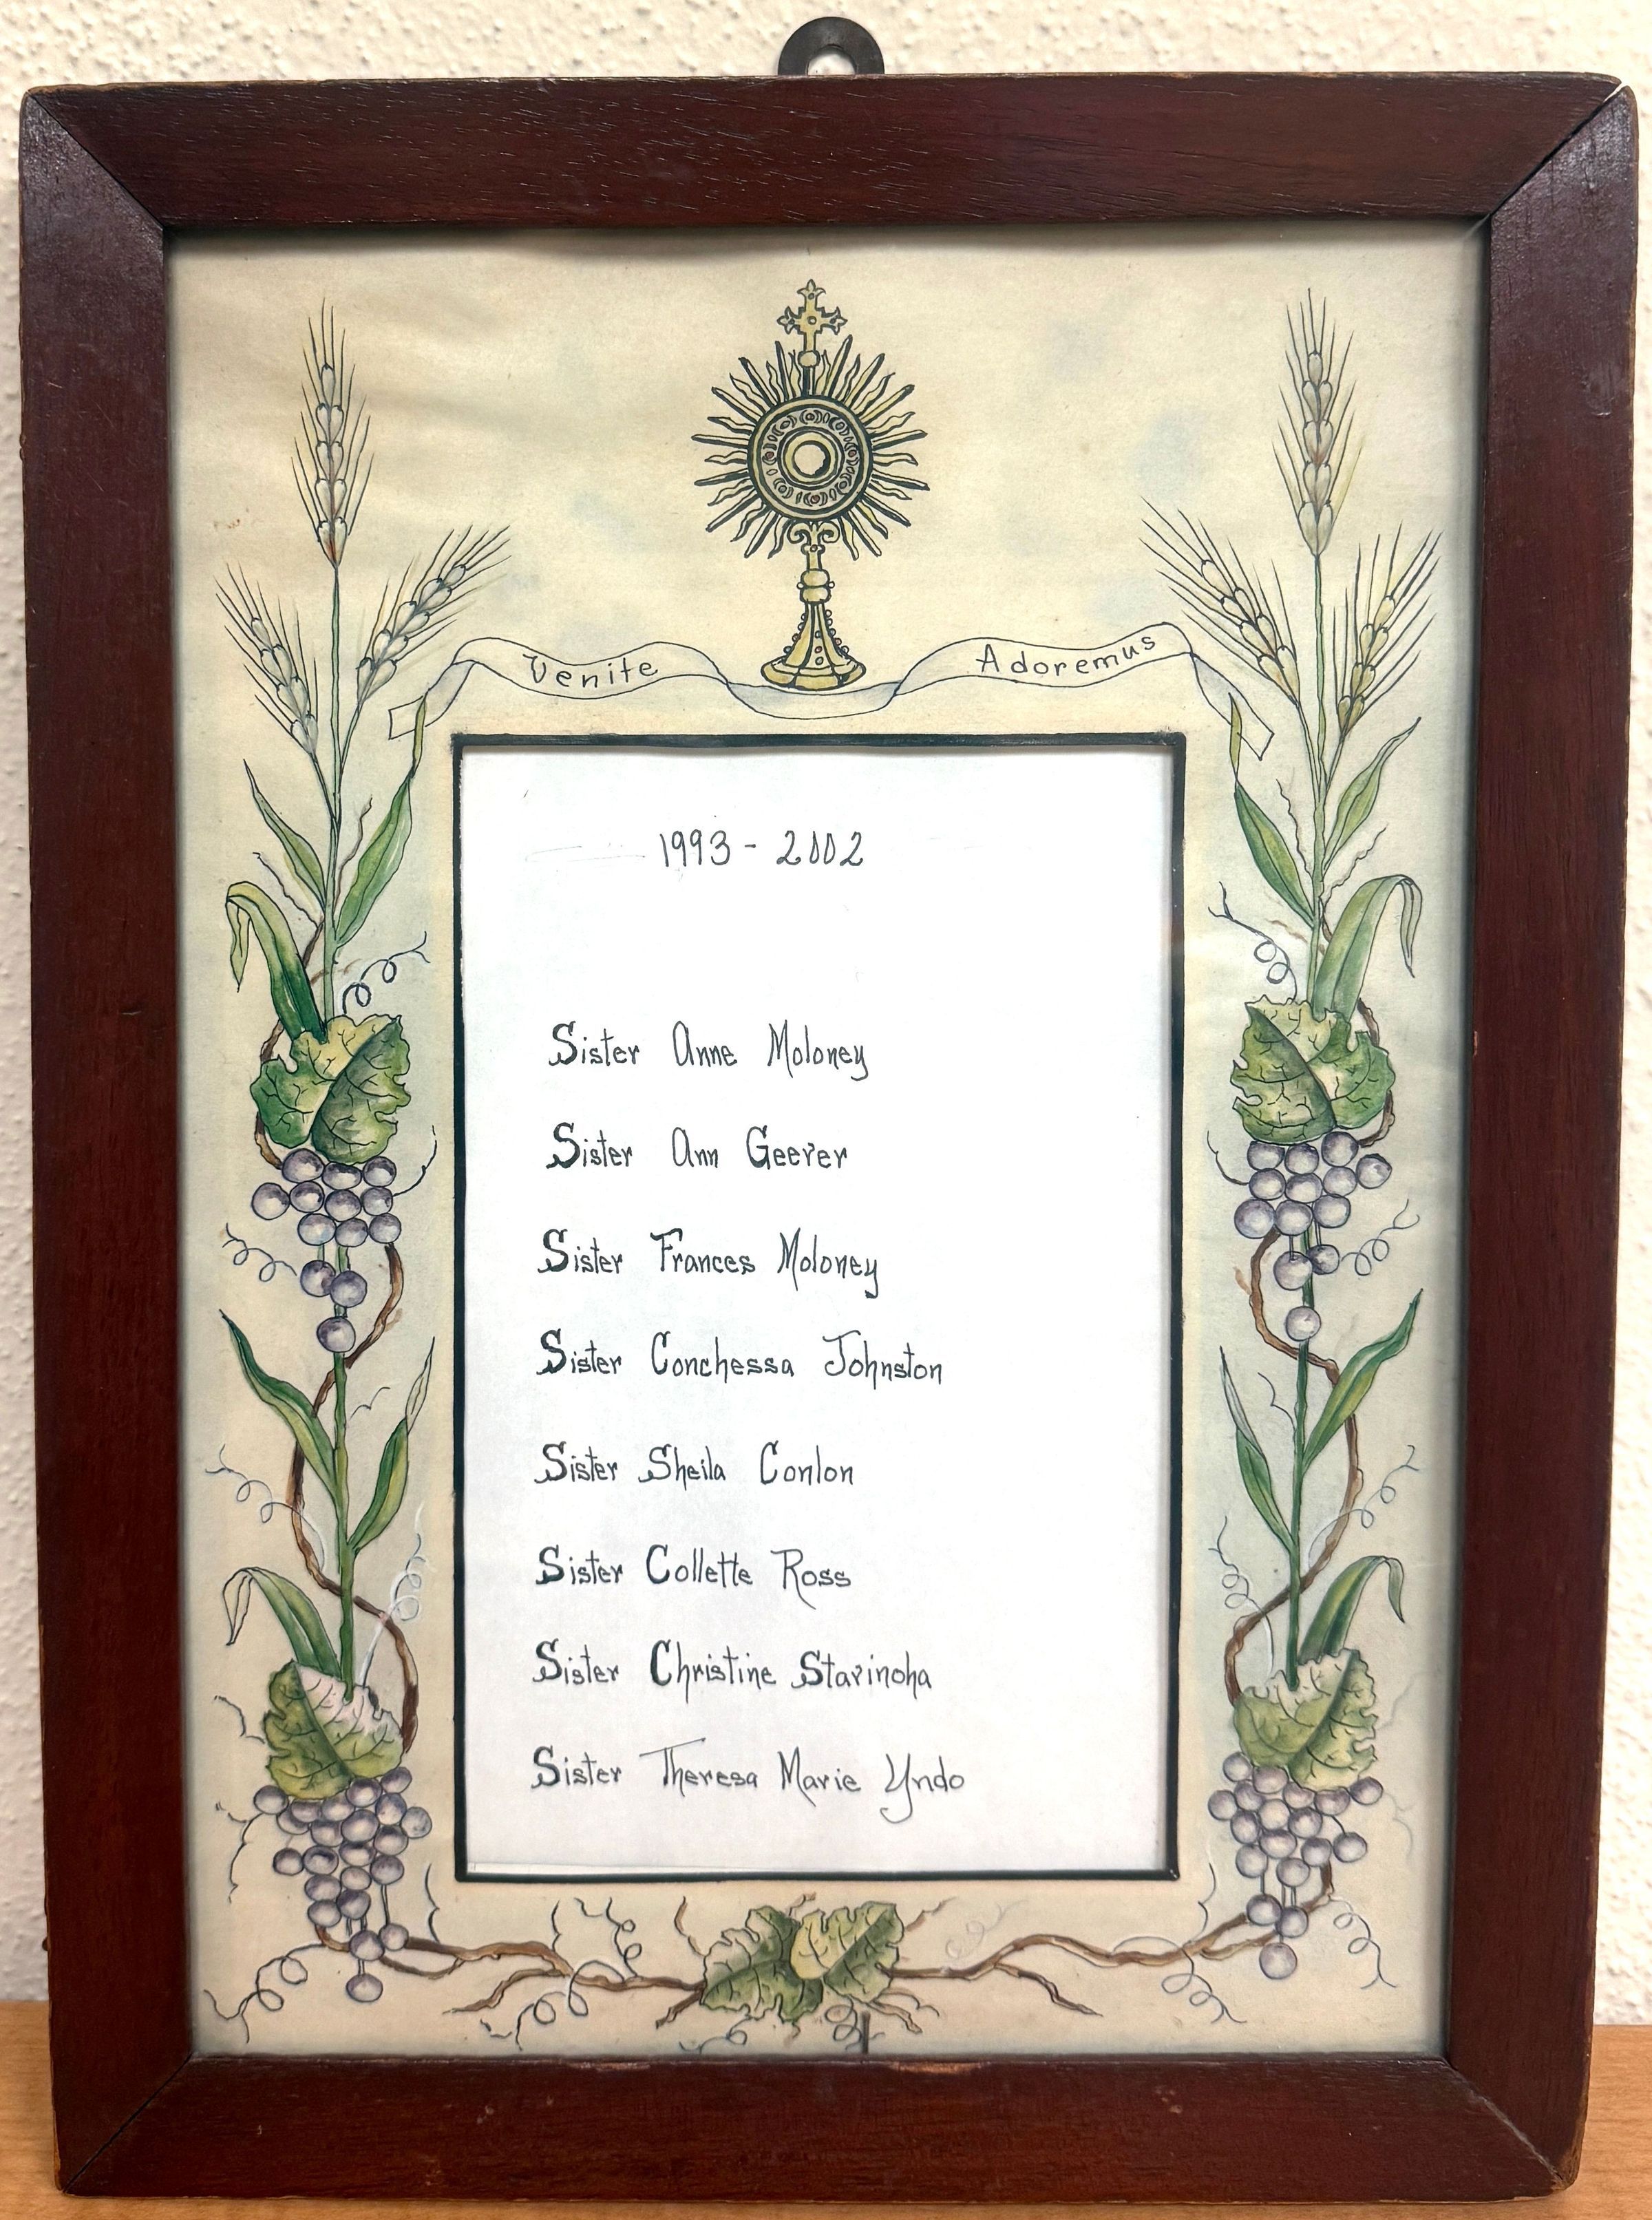 Venite Adoremus
1993 - 2002
Sister Anne Moloney
Sister Ann Geever
Sister Frances Moloney
Sister Conchessa Johnston
Sister Sheila Conlon
Sister Collette Ross
Sister Christine Stavinoha
Sister Theresa Marie Yndo